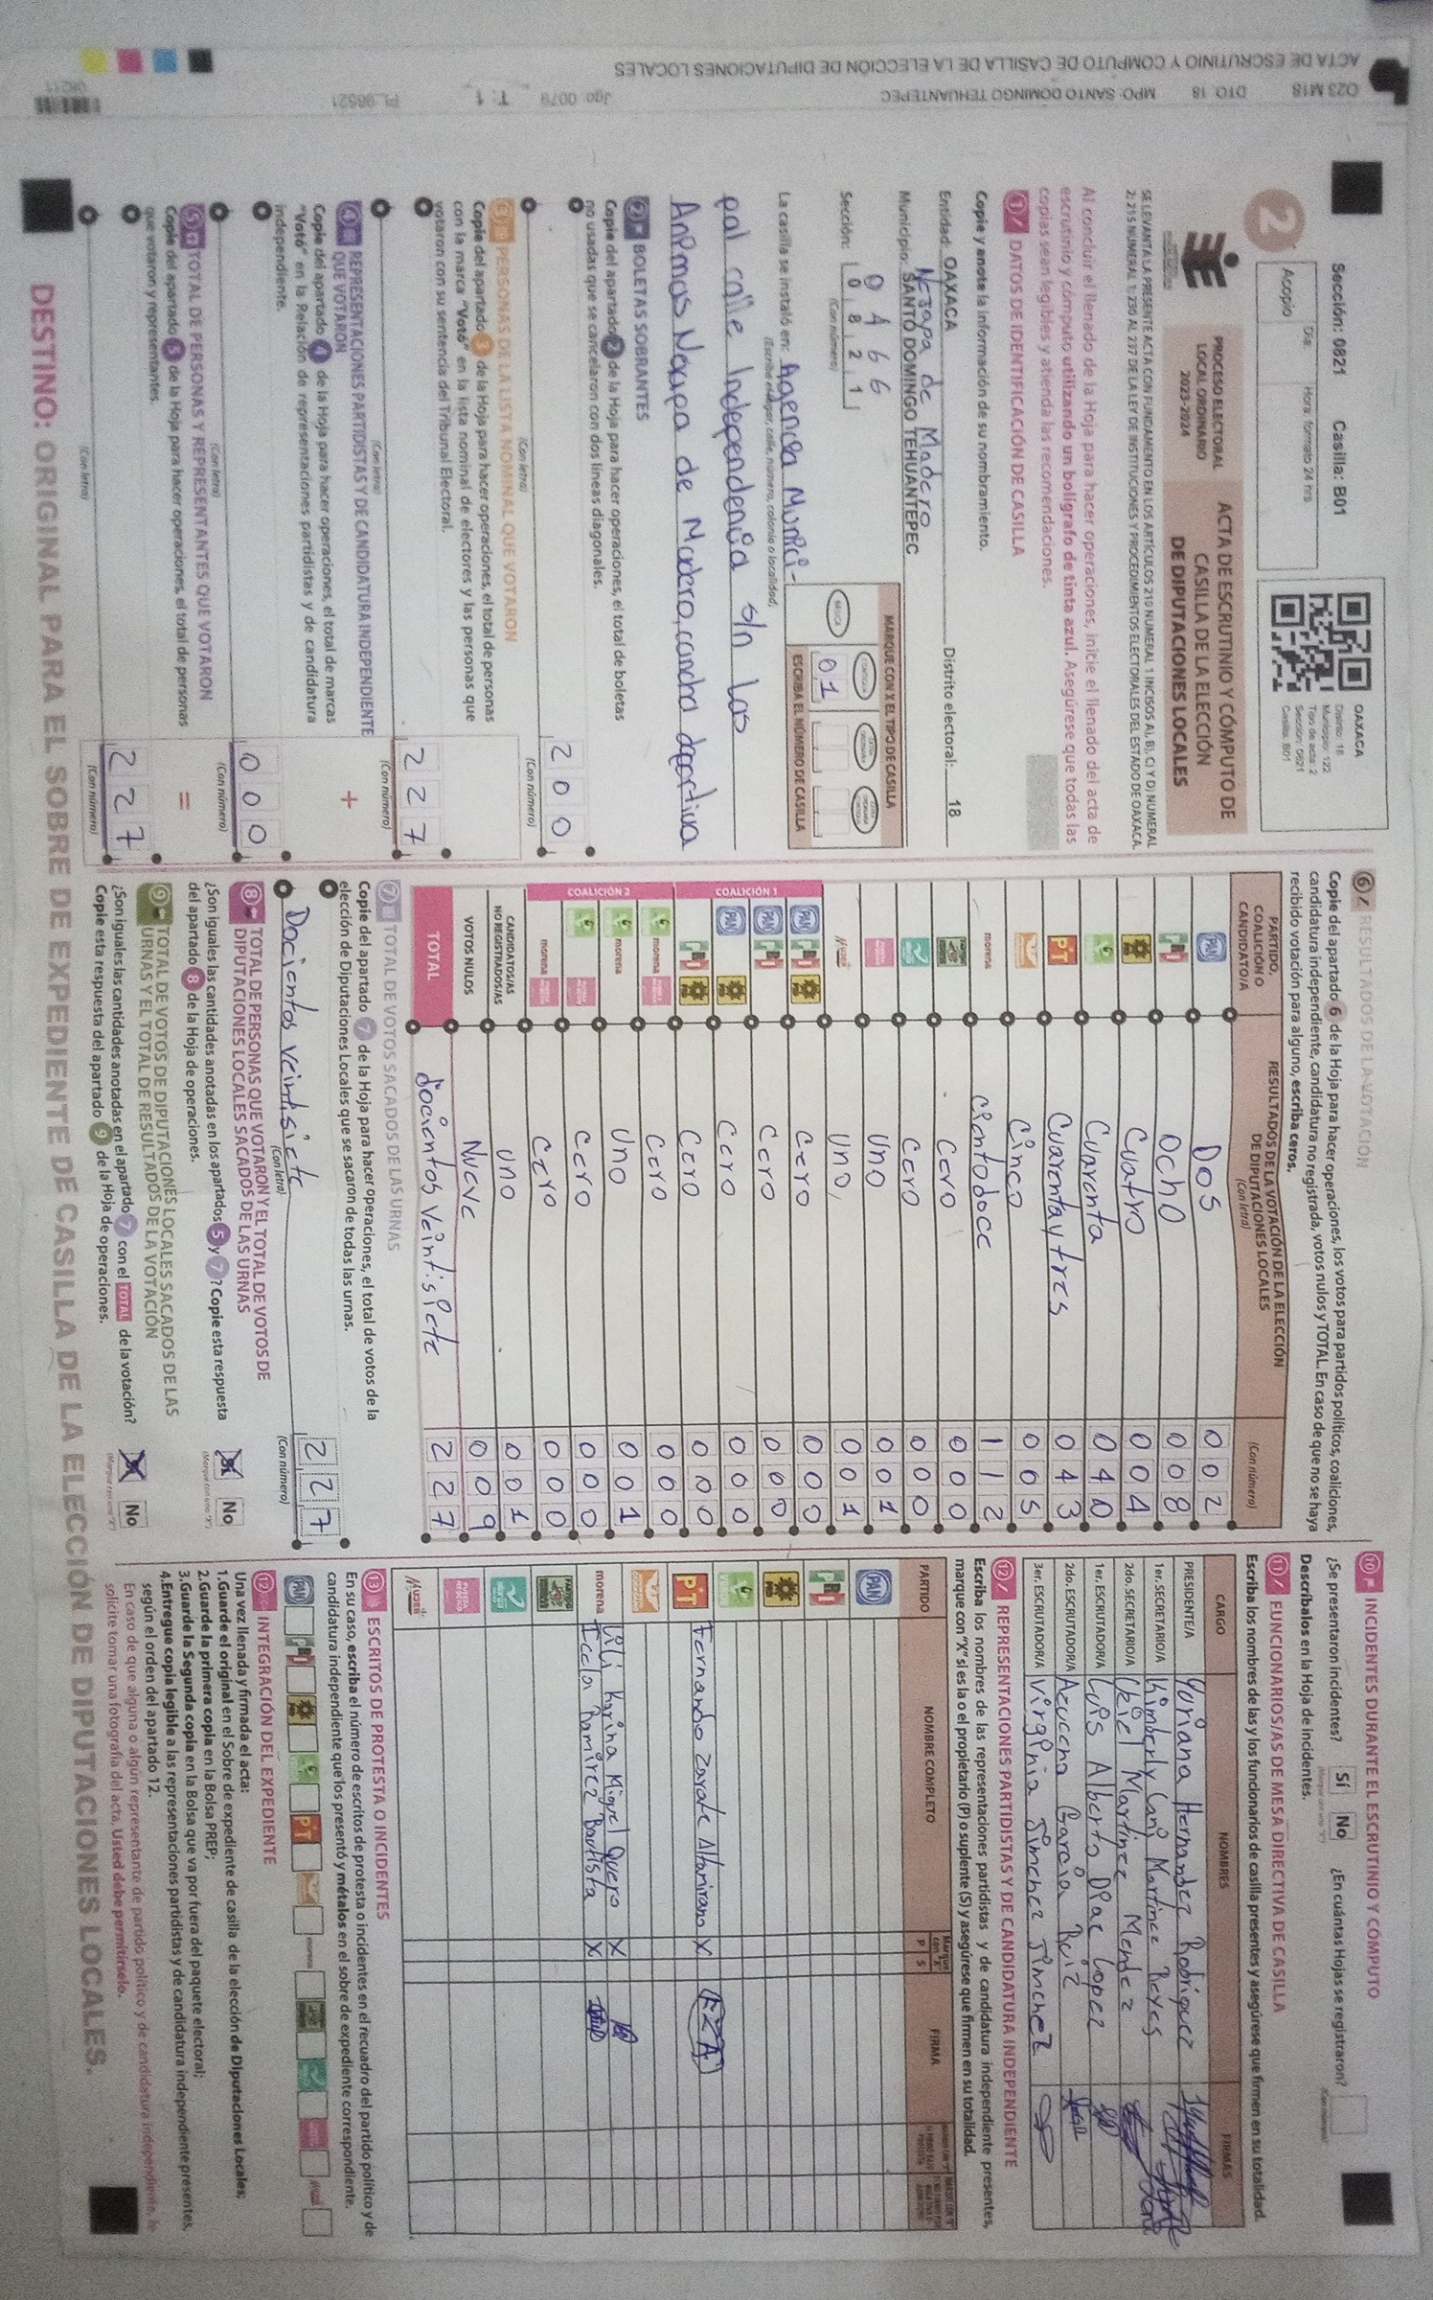 ACTA DE ESCRUTINIO Y CÓMPUTO DE CASILLA DE LA ELECCIÓN DE DIPUTACIONES LOCALES
023 M18 DTO. 18 MPO. SANTO DOMINGO TEHUANTEPEC Jgo. 0079 T: 1
Sección: 0821 Casilla: B01
Día: Hora: formato 24 hrs
2
Acopio
OAXACA
Distrito: 18
Municipio: 122
Tipo de acta: 2
Sección: 0821
Casilla: B01
PROCESO ELECTORAL
LOCAL ORDINARIO
2023-2024
ACTA DE ESCRUTINIO Y CÓMPUTO DE
CASILLA DE LA ELECCIÓN
DE DIPUTACIONES LOCALES
SE LEVANTA LA PRESENTE ACTA CON FUNDAMENTO EN LOS ARTÍCULOS 210 NUMERAL 1 INCISOS A), B), C) Y D) NUMERAL
2; 215 NUMERAL 1; 230 AL 237 DE LA LEY DE INSTITUCIONES Y PROCEDIMIENTOS ELECTORALES DEL ESTADO DE OAXACA.
Al concluir el llenado de la Hoja para hacer operaciones, inicie el llenado del acta de
escrutinio y cómputo utilizando un bolígrafo de tinta azul. Asegúrese que todas las
copias sean legibles y atienda las recomendaciones.
1 DATOS DE IDENTIFICACIÓN DE CASILLA
Copie y anote la información de su nombramiento.
Entidad: OAXACA Distrito electoral: 18
Nejapa de Madero
Municipio: SANTO DOMINGO TEHUANTEPEC
0466
Sección: 0821
(Con número)
MARQUE CON X EL TIPO DE CASILLA
BÁSICA
01
ESCRIBA EL NÚMERO DE CASILLA
La casilla se instaló en: Agencia Munici-
(Escriba el lugar, calle, número, colonia o localidad)
pal calle Independencia s/n las
Animas Nejapa de Madero, cancha deportiva
2 BOLETAS SOBRANTES
Copie del apartado 2 de la Hoja para hacer operaciones, el total de boletas
no usadas que se cancelaron con dos líneas diagonales.
200
(Con letra) (Con número)
3 PERSONAS DE LA LISTA NOMINAL QUE VOTARON
Copie del apartado 3 de la Hoja para hacer operaciones, el total de personas
con la marca "Votó" en la lista nominal de electores y las personas que
votaron con su sentencia del Tribunal Electoral.
227
(Con letra) (Con número)
4 REPRESENTACIONES PARTIDISTAS Y DE CANDIDATURA INDEPENDIENTE
QUE VOTARON
+
Copie del apartado 4 de la Hoja para hacer operaciones, el total de marcas
"Votó" en la Relación de representaciones partidistas y de candidatura
independiente.
000
(Con letra) (Con número)
5 TOTAL DE PERSONAS Y REPRESENTANTES QUE VOTARON
=
Copie del apartado 5 de la Hoja para hacer operaciones, el total de personas
que votaron y representantes.
227
(Con letra) (Con número)
6 RESULTADOS DE LA VOTACIÓN
Copie del apartado 6 de la Hoja para hacer operaciones, los votos para partidos políticos, coaliciones,
candidatura independiente, candidatura no registrada, votos nulos y TOTAL. En caso de que no se haya
recibido votación para alguno, escriba ceros.
PARTIDO, COALICIÓN O CANDIDATO/A
RESULTADOS DE LA VOTACIÓN DE LA ELECCIÓN DE DIPUTACIONES LOCALES
(Con letra) (Con número)
PAN Dos 002
PRI Ocho 008
PRD Cuatro 004
Cuarenta 040
PT Cuarenta y tres 043
Cinco 005
morena Ciento doce 112
Cero 000
Cero 000
Uno 001
MUJER Uno 001
COALICIÓN 1
PAN PRI PRD Cero 000
PAN PRI Cero 000
PAN PRD Cero 000
PRI PRD Cero 000
COALICIÓN 2
morena Cero 000
morena Uno 001
Cero 000
morena Cero 000
CANDIDATOS/AS NO REGISTRADOS/AS Uno 001
VOTOS NULOS Nueve 009
TOTAL docientos veintisiete 227
7 TOTAL DE VOTOS SACADOS DE LAS URNAS
Copie del apartado 7 de la Hoja para hacer operaciones, el total de votos de la
elección de Diputaciones Locales que se sacaron de todas las urnas.
Docientos veintisiete 227
(Con letra) (Con número)
8 TOTAL DE PERSONAS QUE VOTARON Y EL TOTAL DE VOTOS DE
DIPUTACIONES LOCALES SACADOS DE LAS URNAS
¿Son iguales las cantidades anotadas en los apartados 5 y 7? Copie esta respuesta
del apartado 8 de la Hoja de operaciones.
Sí No
9 TOTAL DE VOTOS DE DIPUTACIONES LOCALES SACADOS DE LAS
URNAS Y EL TOTAL DE RESULTADOS DE LA VOTACIÓN
¿Son iguales las cantidades anotadas en el apartado 7 con el TOTAL de la votación?
Copie esta respuesta del apartado 9 de la Hoja de operaciones.
Sí No
10 INCIDENTES DURANTE EL ESCRUTINIO Y CÓMPUTO
¿Se presentaron incidentes? Sí No ¿En cuántas Hojas se registraron?
Descríbalos en la Hoja de incidentes.
11 FUNCIONARIOS/AS DE MESA DIRECTIVA DE CASILLA
Escriba los nombres de las y los funcionarios de casilla presentes y asegúrese que firmen en su totalidad.
CARGO NOMBRES FIRMAS
PRESIDENTE/A Yuriana Hernandez Rodriguez
1er. SECRETARIO/A Kimberly Martinez Reyes
2do. SECRETARIO/A Martinez Mendez
1er. ESCRUTADOR/A Luis Alberto Diaz Lopez
2do. ESCRUTADOR/A Azucena Garcia Ruiz
3er. ESCRUTADOR/A Virginia Jimenez Jimenez
12 REPRESENTACIONES PARTIDISTAS Y DE CANDIDATURA INDEPENDIENTE
Escriba los nombres de las representaciones partidistas y de candidatura independiente presentes,
marque con "X" si es la o el propietario (P) o suplente (S) y asegúrese que firmen en su totalidad.
PARTIDO NOMBRE COMPLETO P S FIRMA
PAN
PRI
PRD
PT Fernando Zarate Altamirano X
morena Lili Karina Miguel Quero X
Icela Ramirez Bautista X
MUJER
13 ESCRITOS DE PROTESTA O INCIDENTES
En su caso, escriba el número de escritos de protesta o incidentes en el recuadro del partido político y de
candidatura independiente que los presentó y métalos en el sobre de expediente correspondiente.
PAN PRI PRD PT
12 INTEGRACIÓN DEL EXPEDIENTE
Una vez llenada y firmada el acta:
1.Guarde el original en el Sobre de expediente de casilla de la elección de Diputaciones Locales;
2.Guarde la primera copia en la Bolsa PREP;
3.Guarde la Segunda copia en la Bolsa que va por fuera del paquete electoral;
4.Entregue copia legible a las representaciones partidistas y de candidatura independiente presentes,
según el orden del apartado 12.
En caso de que alguna o algún representante de partido político y de candidatura independiente, le
solicite tomar una fotografía del acta. Usted debe permitírselo.
DESTINO: ORIGINAL PARA EL SOBRE DE EXPEDIENTE DE CASILLA DE LA ELECCIÓN DE DIPUTACIONES LOCALES.